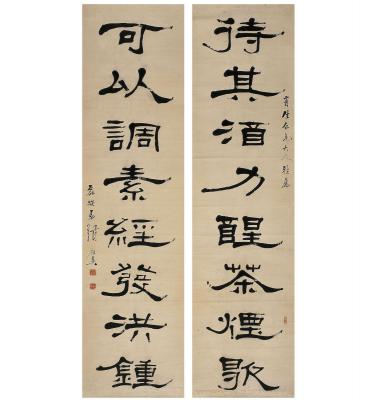 待其酒力醒茶煙歇
可以調素經發洪鍾